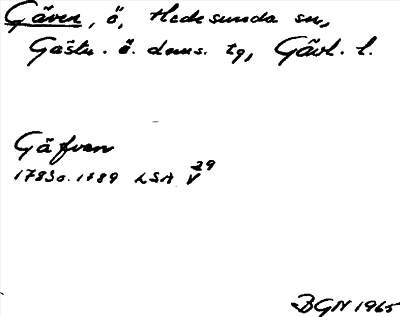 Gäven, ö, Hedesunda sn,
Gästr. ö. doms. tg, Gävl. l.
Gäfven
1783 o. 1789 LSA V 29
BGN 1965